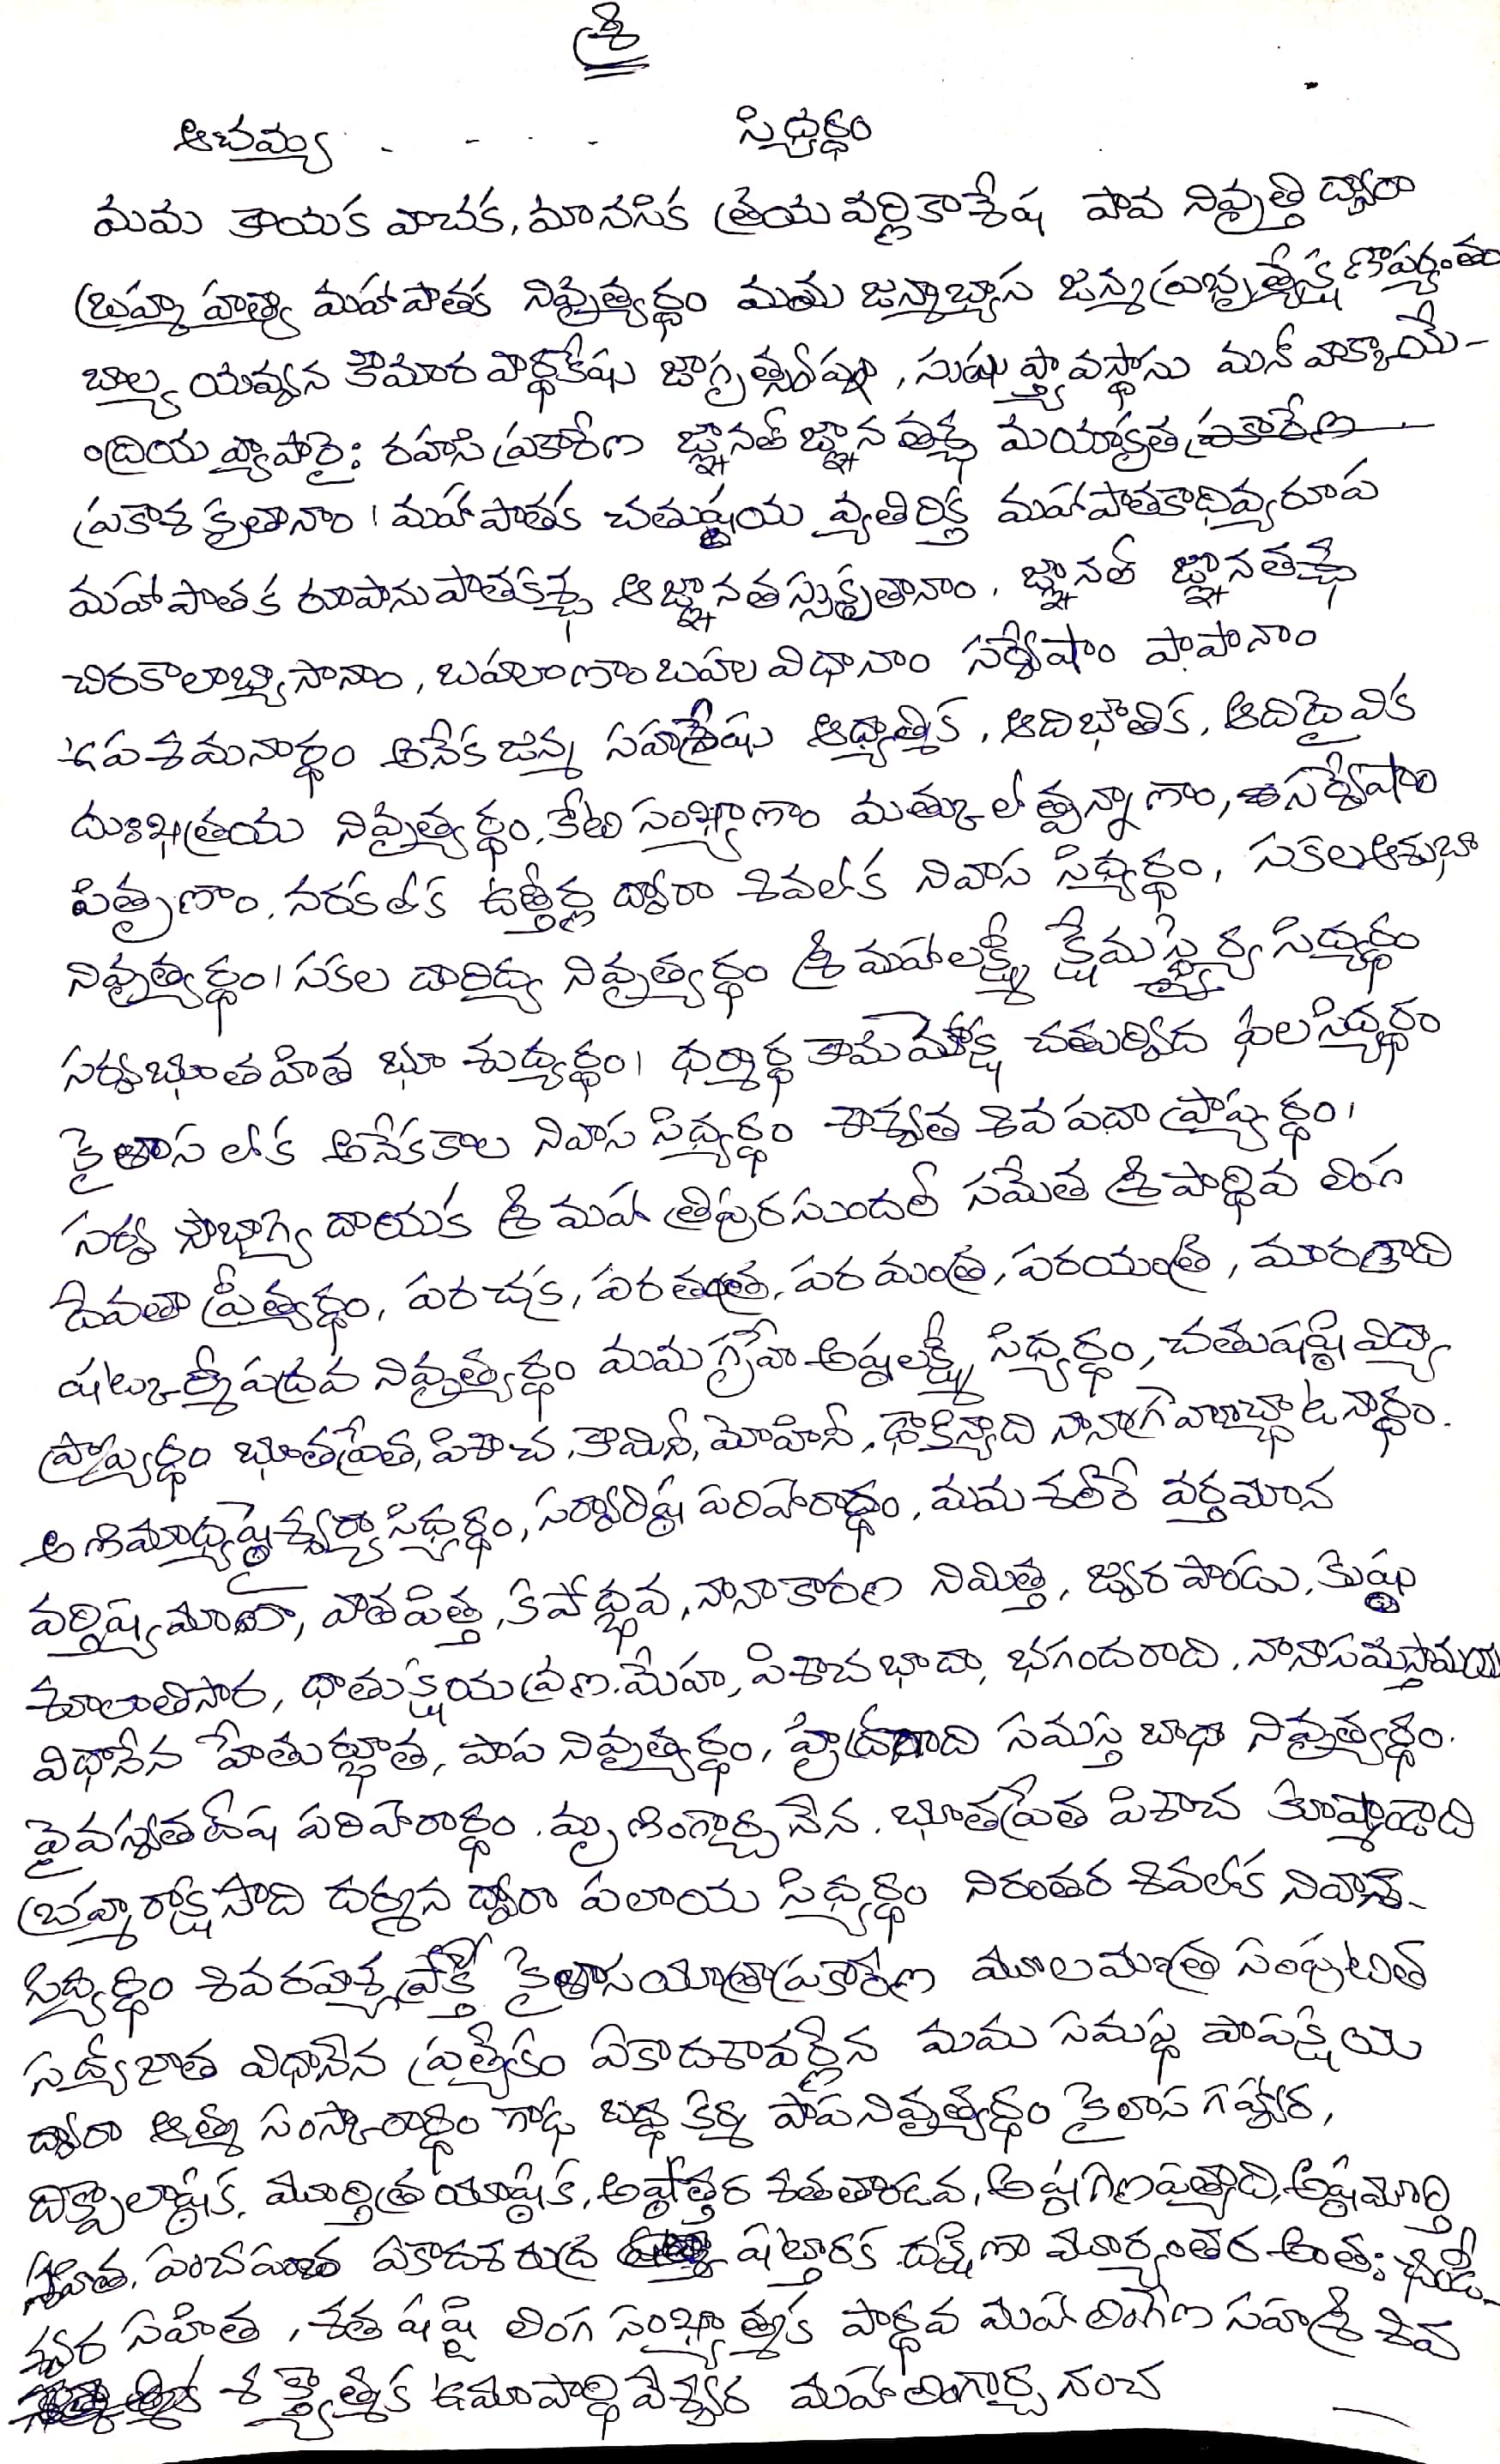 శ్రీ
ఆచమ్య - - - - సిధ్యర్థం
మమ కాయక వాచక, మానసిక త్రయ వర్ణికాశేష పాప నివృత్తి ద్వారా
బ్రహ్మ హత్యా మహాపాతక నివృత్యర్థం మమ జన్మాభ్యాస జన్మ ప్రభృత్యేక్ష ణపర్యంతం
బాల్య యవ్వన కౌమార వార్థకేషు జాగృత్స్వప్న, సుషుప్త్యావస్థాసు మనో వాక్కాయే-
ంద్రియ వ్యాపారైః రహసి ప్రకారేణ జ్ఞానతో జ్ఞాన తశ్చ మయాకృత
ప్రకాశ కృతానాం। మహాపాతక చతుష్టయ వ్యతిరిక్త మహాపాతకాధివ్యరూప
మహాపాతక రూపానుపాతకశ్చ ఆజ్ఞానతస్సకృతానాం, జ్ఞానతో జ్ఞానతశ్చ
చిరకాలాభ్యాసానాం, బహూణాం బహు విధానాం సర్వేషాం పాపానాం
ఉపశమనార్థం అనేక జన్మ సహశ్రేషు ఆధ్యాత్మిక, ఆదిభౌతిక, ఆదిదైవిక
దుఃఖత్రయ నివృత్యర్థం, కోటి సంఖ్యాణాం మత్కులోత్పన్నాణాం, సర్వేషాం
పితౄణాం, నరకలోక ఉత్తీర్ణ ద్వారా శివలోక నివాస సిధ్యర్థం, సకల ఆశుభా
నివృత్యర్థం। సకల దారిద్ర్య నివృత్యర్థం శ్రీ మహాలక్ష్మీ క్షేమస్థైర్య సిధ్యర్థం
సర్వభూత హిత భూ శుద్యర్థం। ధర్మార్థ కామమోక్ష చతుర్విద ఫలసిధ్యర్థం
కైలాస లోక అనేకకాల నివాస సిధ్యర్థం శాశ్వత శివ పదా ప్రాప్త్యర్థం।
సర్వ సౌభాగ్య దాయక శ్రీ మహా త్రిపుర సుందరీ సమేత శ్రీ పార్థివ లింగ
దేవతా ప్రీత్యర్థం, పరచక్ర, పరతంత్ర, పర మంత్ర, పరయంత్ర, మారణాది
షట్కర్మోపద్రవ నివృత్యర్థం మమ గృహే అష్టలక్ష్మీ సిధ్యర్థం, చతుషష్ఠి విద్యా
ప్రాప్త్యర్థం భూతప్రేత, పిశాచ, కామినీ, మోహినీ, ఢాకిన్యాది నానాగ్రహోచ్ఛాటనార్థం.
అణిమాద్యష్టైశ్వర్యా సిధ్యర్థం, సర్వారిష్ఠ పరిహారార్థం, మమ శరీరే వర్తమాన
వర్తిష్యమాణ, వాతపిత్త, కఫోద్భవ, నానాకారణ నిమిత్త, జ్వర పాండు, కుష్ఠు
శూలాతిసార, ధాతుక్షయ వ్రణ, మేహ, పిశాచ భాదా, భగందరాది, నానాసమస్తామయ
విధానేన హేతుర్భూత, పాప నివృత్యర్థం, సమస్త బాధా నివృత్యర్థం.
వైవస్వతదోష పరిహారార్థం. మృణింగార్చనేన. భూతప్రేత పిశాచ కూష్మాడాది
బ్రహ్మ రాక్షసాది దర్శన ద్వారా పలాయ సిధ్యర్థం నిరంతర శివలోక నివాస-
సిధ్యర్థం శివరహస్య ప్రోక్త కైలాసయాత్రాప్రకారేణ మూలమంత్ర సంపుటిత
సద్యోజాత విధానేన ప్రత్యేకం ఏకాదశావర్తేన మమ సమస్థ పాపక్షయ
ద్వారా ఆత్మ సంస్కారార్థం గాఢ బద్ధ కర్మ పాపనివృత్యర్థం కైలాస గహ్వర,
దిక్పాలాష్ఠక, మూర్తిత్రయాష్ఠక, అష్టోత్తర శతతాండవ, అష్ఠగణపత్యాది, అష్ఠమూర్తి
సహిత, ఏకాదశ రుద్ర షట్తారక దక్షిణా మూర్త్యంతర అంతః చండే-
శ్వర సహిత, శత షష్ఠి లింగ సంఖ్యాత్మక పార్థవ మహా లింగేణ సహశ్ర శివ
శక్త్యాత్మిక ఉమాపార్థివేశ్వర మహాలింగార్చనంచ